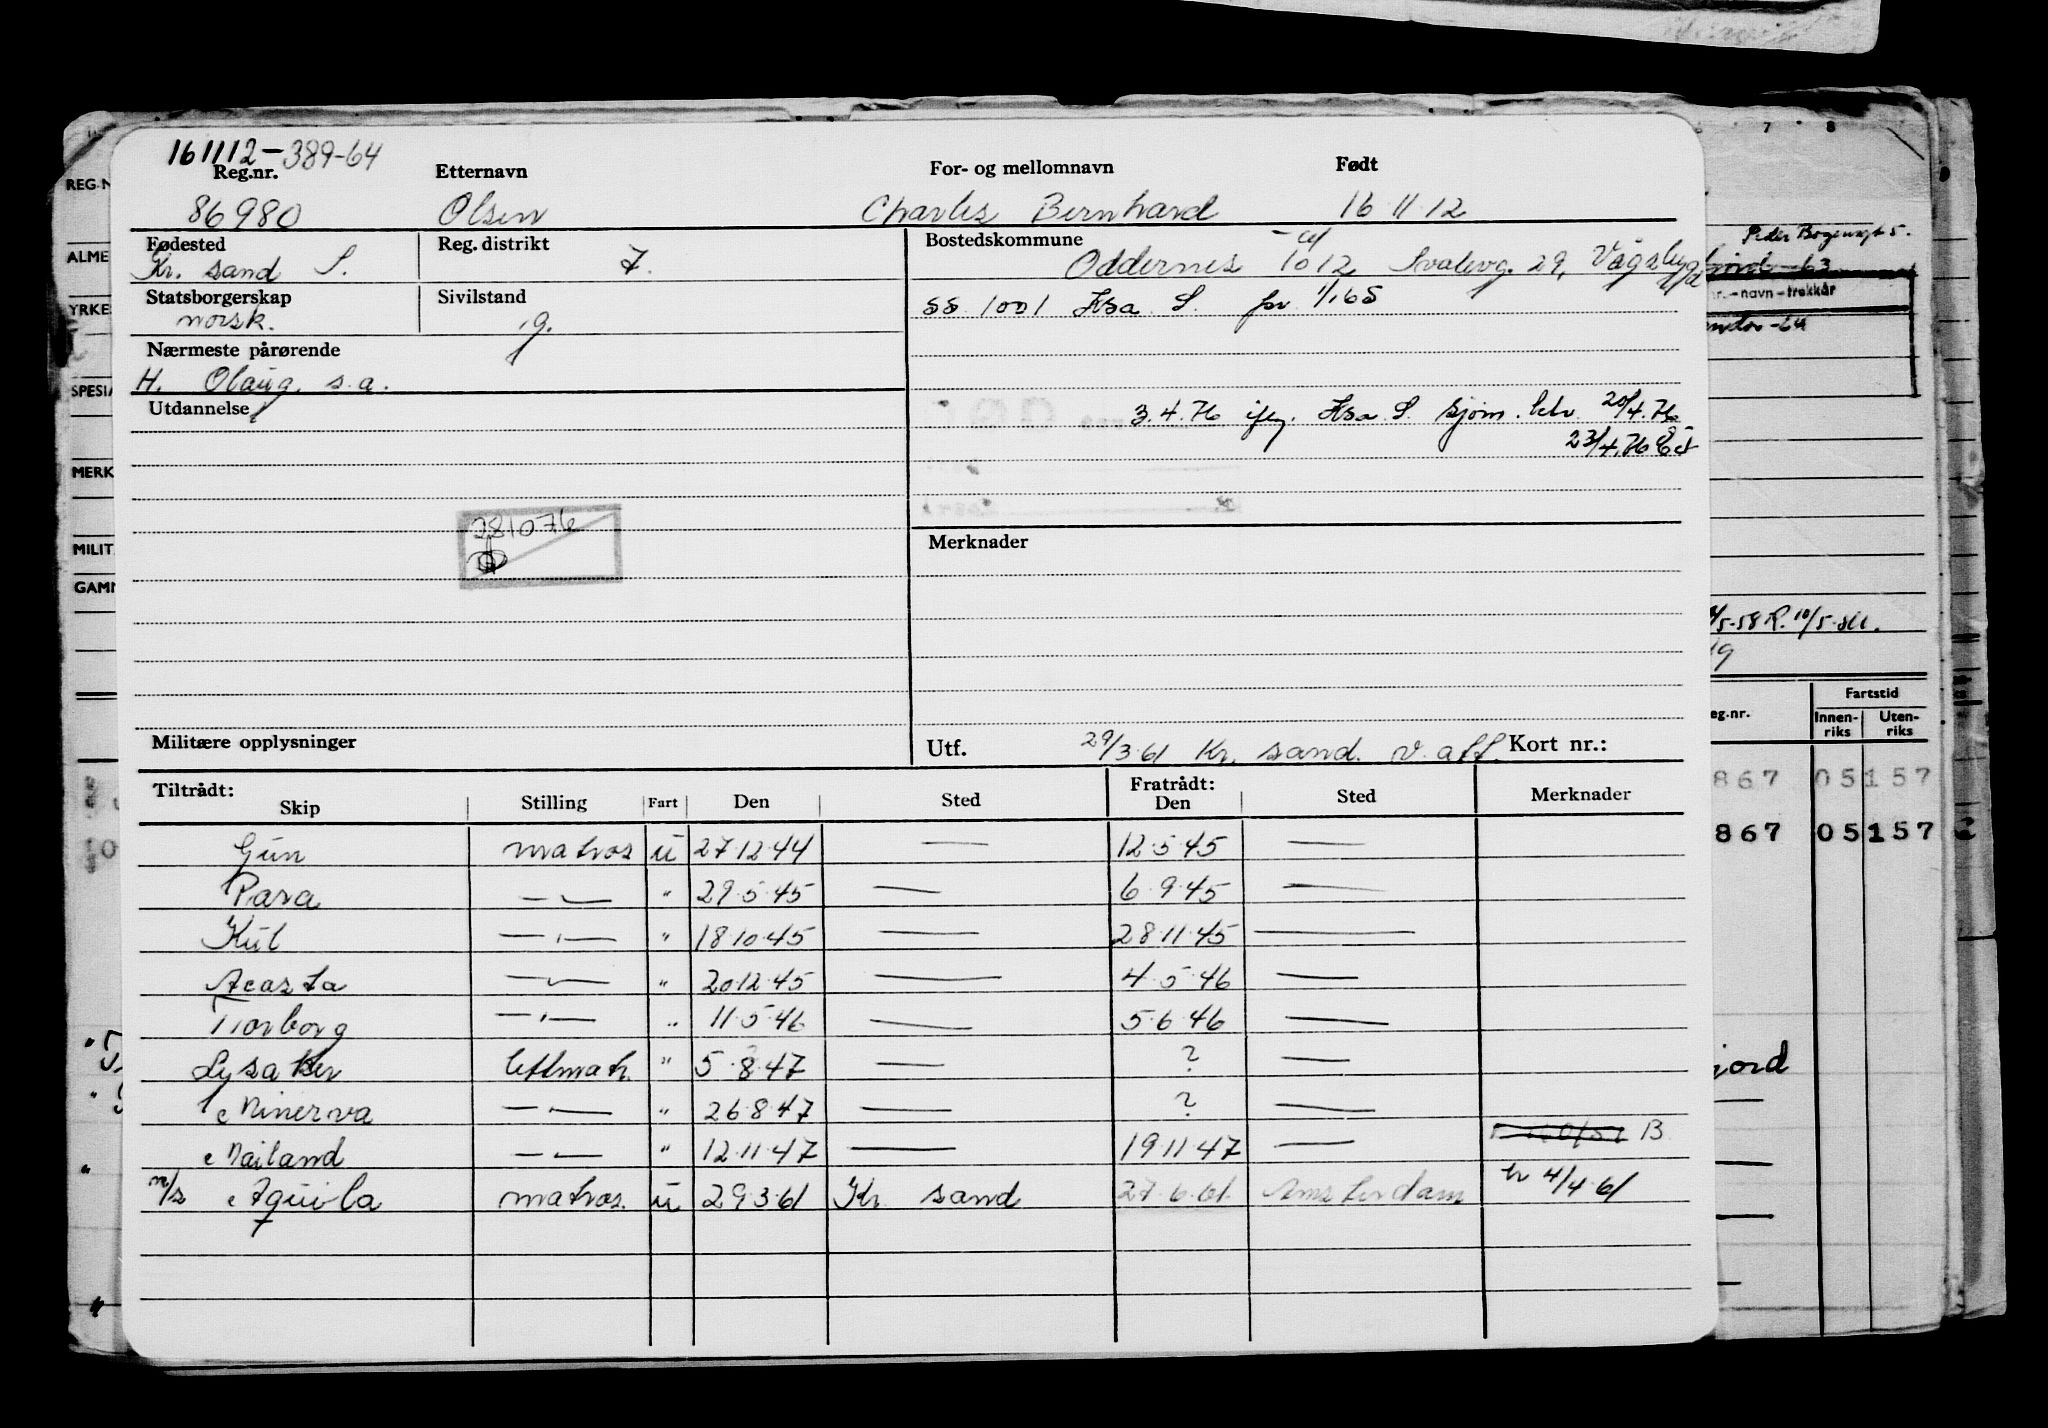 161112-389-64
Reg.nr. Etternavn For- og mellomnavn Født
86980 Olsen Charles Bernhard 16.11.12
Fødested Reg. distrikt Bostedskommune
Kr. sand S. 7. Oddernes 1012 Svalevg. 29, Vågsbygd
Statsborgerskap Sivilstand
norsk. g. 1001 Krsa. S. pr. 1/1 65
Nærmeste pårørende
H. Olaug, s.a.
Utdannelse
3.4.76 Krsa. S. sjøm. 20/4.76
23/4.76
281076
Merknader
Militære opplysninger Utf. 29/3 61 Kr. sand. v. aff. Kort nr.:
Tiltrådt: Fratrådt:
Skip Stilling Fart Den Sted Den Sted Merknader
Gun matros u 27.12.44 — 12.5.45 —
Para —"— " 29.5.45 — 6.9.45 —
Kul —"— " 18.10.45 — 28.11.45 —
Acasta —"— " 20.12.45 — 4.5.46 —
Thorborg —"— " 11.5.46 — 5.6.46 —
Lysaker lettmatr. " 5.8.47 — ? —
Minerva —"— " 26.8.47 — ? —
Mailand —"— " 12.11.47 — 19.11.47 — B
m/s Aquila matros. u 29.3.61 Kr. sand 27.6.61. Amsterdam 4/4.61
REG.N
ALME
YRKE
SPESIA
MERK
MILIT
GAMM
7 8
r. – navn – trekkår
-64
5-58 R. 10/5-
19
eg.nr. Fartstid
Innen-riks Uten-riks
867 05157
867 05157
jord